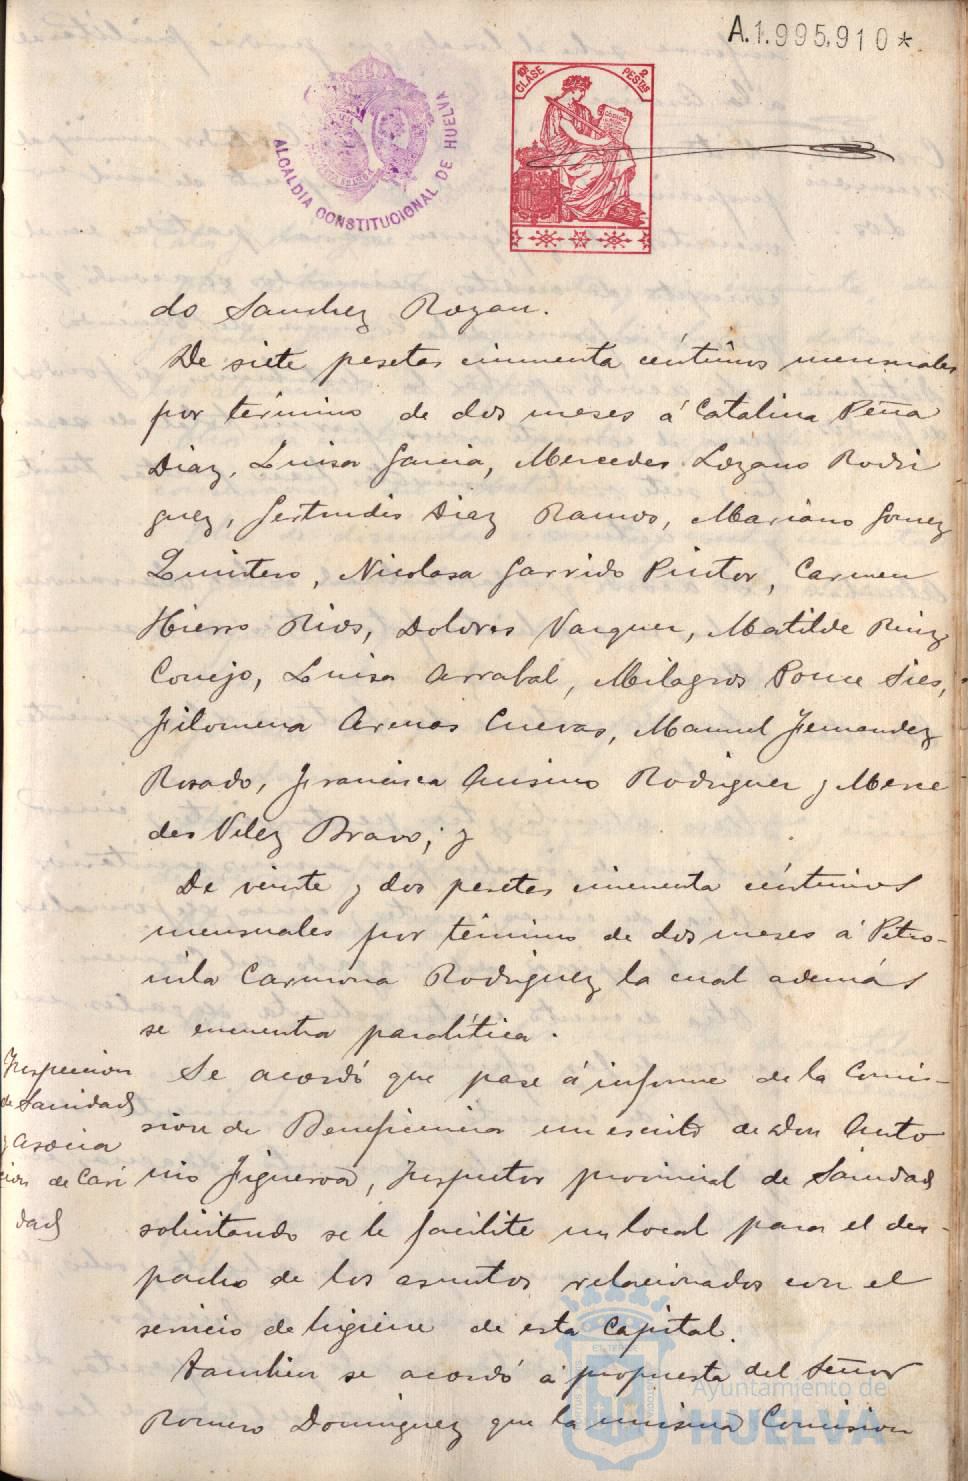 A.1.995.910*
ALCALDIA CONSTITUCIONAL DE HUELVA
10ª CLASE 2 PESTAS
do Sanchez Rozan.
De siete pesetas cincuenta céntimos mensuales
por término de dos meses á Catalina Peña
Diaz, Luisa Garcia, Mercedes Lozano Rodri
guez, Gertrudis Diaz Ramos, Mariano Gomez
Quintero, Nicolasa Garrido Pintor, Carmen
Hierro Rios, Dolores Vazquez, Matilde Ruiz
Conejo, Luisa Arrabal, Milagros Ponce
Filomena Arenas Cuevas, Manuel Fernandez
Rosado, Francisca Rodriguez y Merce
des Velez Bravo; y
De veinte y dos pesetas cincuenta céntimos
mensuales por término de dos meses á Petro-
nila Carmona Rodriguez la cual además
se encuentra paralítica.
Inspeccion
de Sanidad
y Asocia
cion de Cari
dad
Se acordó que pase á informe de la Comi-
sion de Beneficencia un escrito de Don Anto
nio Figueroa, Inspector provincial de Sanidad
solicitando se le facilite un local para el des-
pacho de los asuntos relacionados con el
servicio de higiene de esta Capital.
Tambien se acordó á propuesta del Señor
Romero Dominguez que la misma Comision
Ayuntamiento de
HUELVA